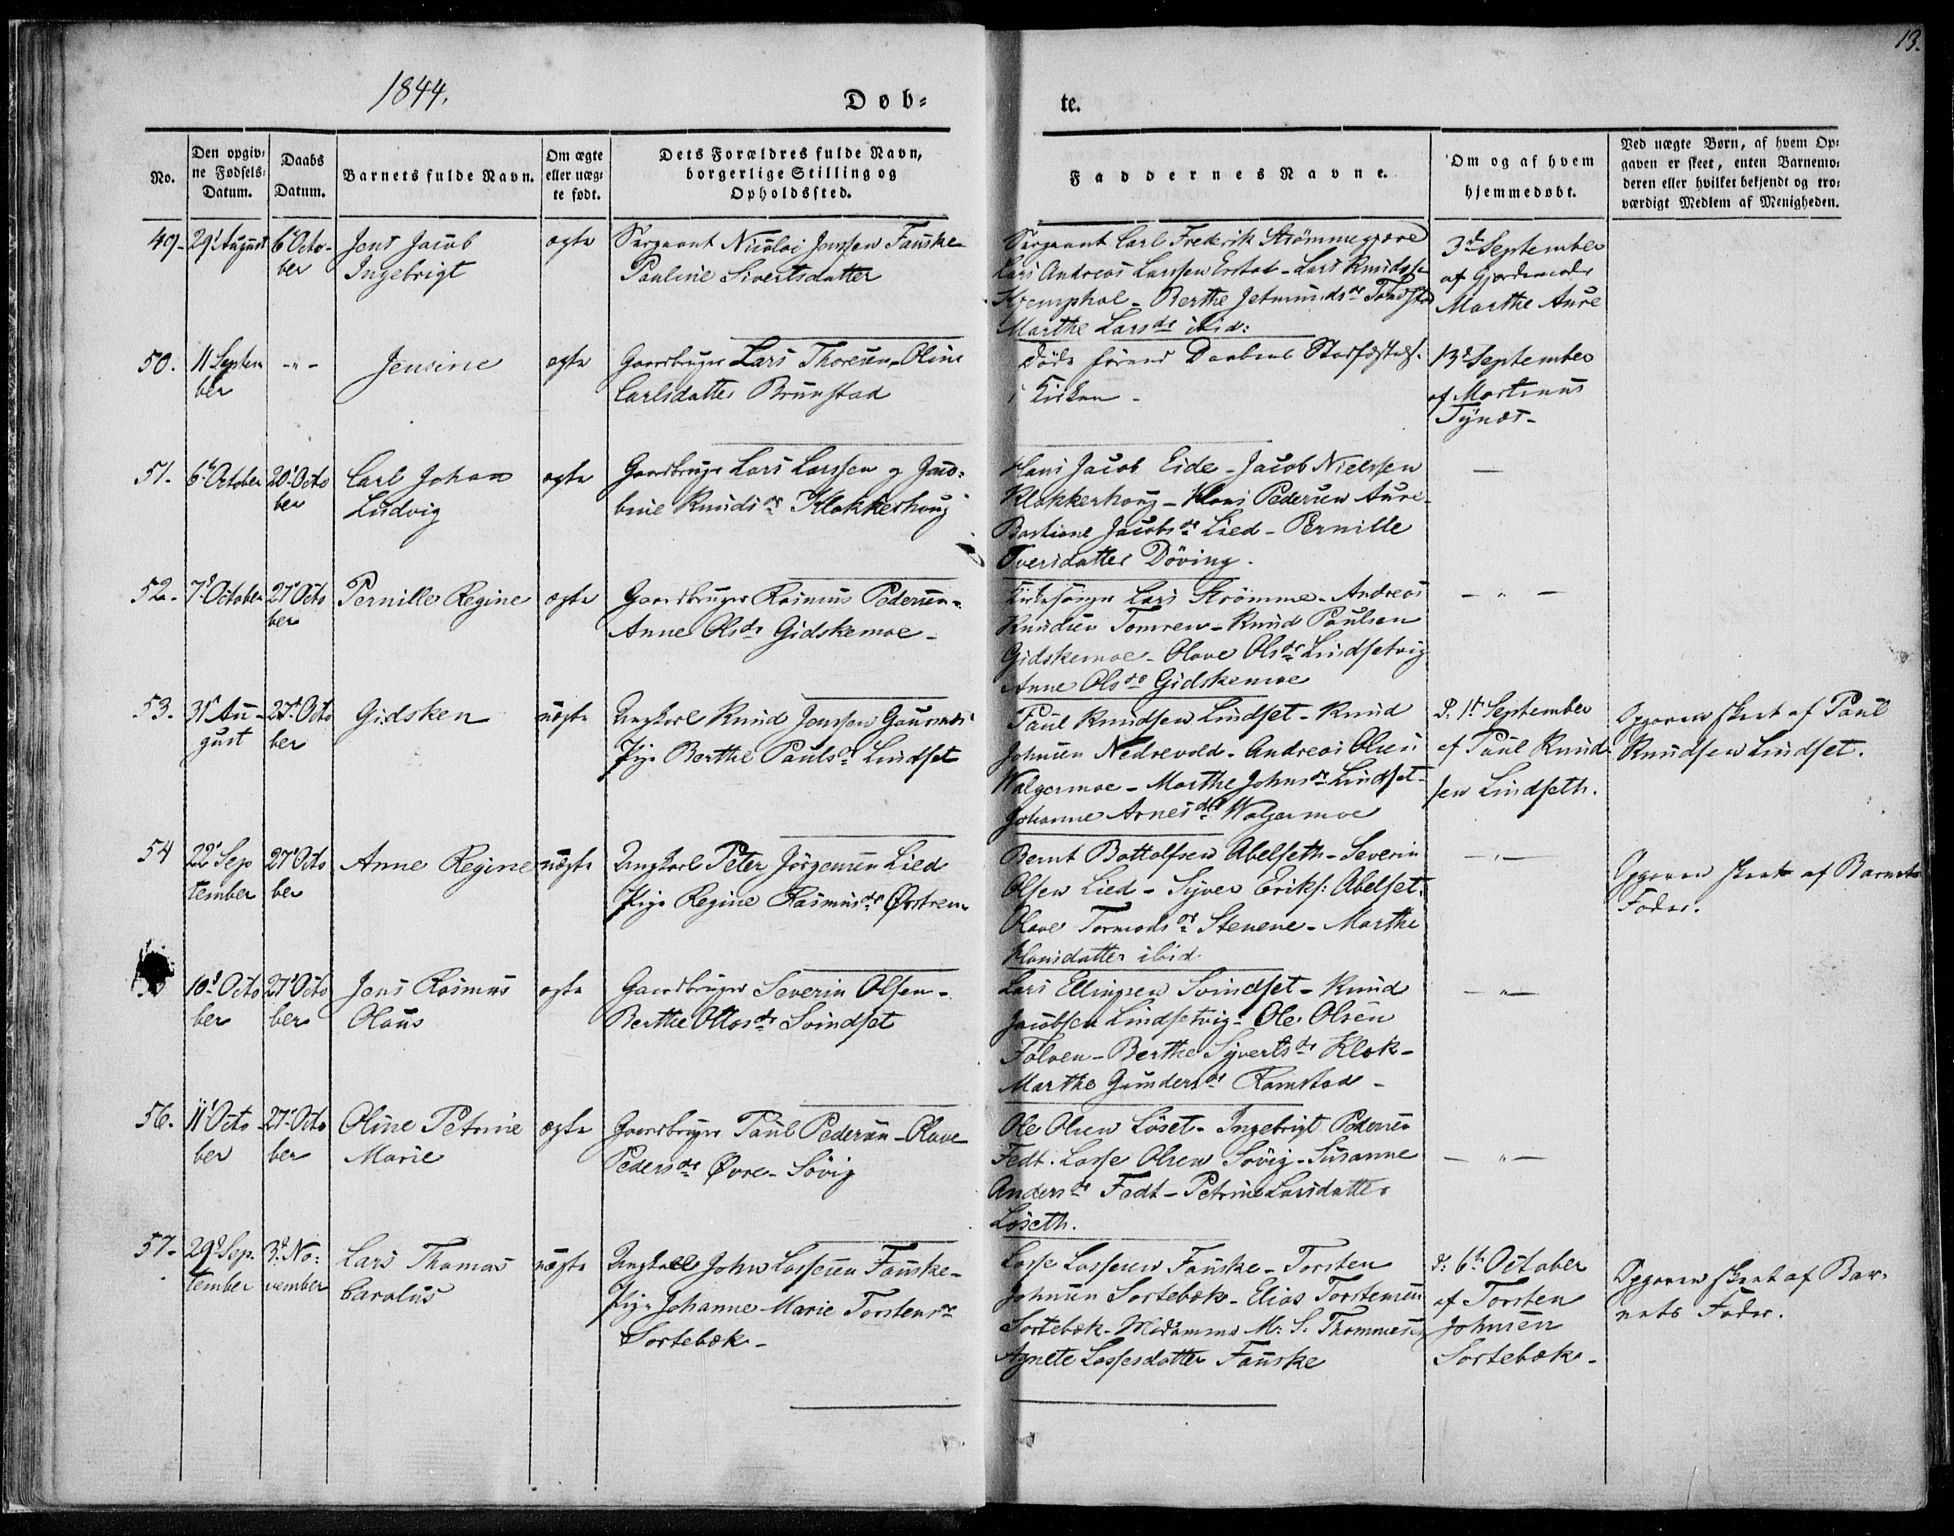 13.
1844.
Døb=
te.
No.
Den opgiv=
ne Fødsels=
Datum.
Daabs
Datum.
Barnets fulde Navn.
Om ægte
eller uæg=
te født.
Dets Forældres fulde Navn,
borgerlige Stilling og
Opholdssted.
Faddernes Navne.
Om og af hvem
hjemmedøbt.
Ved uægte Børn, af hvem Op=
gaven er skeet, enten Barnemo=
deren eller hvilket bekjendt og tro=
værdigt Medlem af Menigheden.
49-
29 August
6 Octo-
ber
Jens Jacob
Ingebrigt
ægte
Sergeant Nicolai Jenssen Fauske
Pauline Sivertsdatter
Sergeant Carl Frederik Strømmegjære
Lars Andreas Larssen Erstad - Lars Knudss
Kjemphol - Berthe Jetmundsdr Tandstad
Marthe Larsdr ibid:
3d September
af Gjordemoder
Marthe Aure
50.
11 Septem
ber
- " -
Jensine
ægte
Gaardbruger Lars Thoresen, Oline
Carlsdatter Brunstad
Døde førend Daabens Stadfæstelse
i Kirken -
13d September
af Martinus
Tynes-
51.
6t October
20 Octo
ber
Carl Johan
Ludvig
ægte
Gaardbruger Lars Larssen og Jaco=
bine Knudsdr Klokkerhoug
Hans Jacob Eide - Jacob Nielssen
Klokkerhoug - Hans Pedersen Aure-
Bastiane Jacobsdr Lied - Pernille
Iversdatter Döving.
—
52-
7d October
27 Octo
ber
Pernille Regine
ægte
Gaardbruger Rasmus Pedersen-
Anne Olsdr Gidskemoe-
Kirkesanger Lars Strømme - Andreas
Knudsen Tomren - Knud Paulsen
Gidskemoe - Olave Olsdr Lindsetvig
Anne Olsdr Gidskemoe
— " —
53.
31 Au-
gust
27 Octo
ber
Gidsken
uægte
Ungkarl Knud Jenssen
Pige Berthe Paulsdr Lindset
Paul Knudsen Lindset - Knud
Johnsen Nedrevold - Andreas Olsen
Walgermoe - Marthe Johnsdr Lindset-
Johanne Arnesdtr Walgermoe
d. 1t September
af Paul Knud-
sen Lindseth.
Opgaven skeet af Paul
Knudsen Lindset.
54
22 Sep
tember
27 Octo
ber
Anne Regine
uægte
Ungkarl Peter Jörgensen Lied
Pige Regine Rasmusdr Ørstren-
Bernt Bottolfsen Abelseth - Severin
Olsen Lied - Syver Eriks: Abelset.
Olave Tormodsdr Stenene - Marthe
Hansdatter ibid.
— " —
Opgaven skeet af Barnets
Fader.
10d Octo
ber
27 Octo
ber
Jens Rasmus
Olaus
ægte
Gaardbruger Severin Olsen-
Berthe Ottosdr Svindset
Lars Ellingsen Svindset - Knud
Jacobsen Lindsetvig - Ole Olsen
Folven - Berthe Syvertsdr Klok-
Marthe Gundersdr Ramstad -
— " —
56.
11 Octo
ber
27 Octo
ber
Oline Petrine
Marie
ægte
Gaardbruger Paul Pedersen - Olave
Pedersdr Øvre- Sövig
Ole Olsen Löset - Ingebrigt Pedersen
Fedt. Lasse Olsen Sövig - Susanne
Andersdr Fedt - Petrine Larsdatter
Löseth.
— " —
57-
29d Sep-
tember
3d No=
vember
Lars Thomas
Carolus
uægte
Ungkarl John Lassesen Fauske-
Pige Johanne Marie Torstensdr
Sortebæk-
Lasse Lassesen Fauske - Torsten
Johnsen Sortebæk - Elias Torstensen
Sortebæk - Madamme M: S. Thommesen
Agnete Lassesdatter Fauske
d: 6th October
af Torsten
Johnsen
Sortebæk-
Opgaven skeet af Bar-
nets Fader.